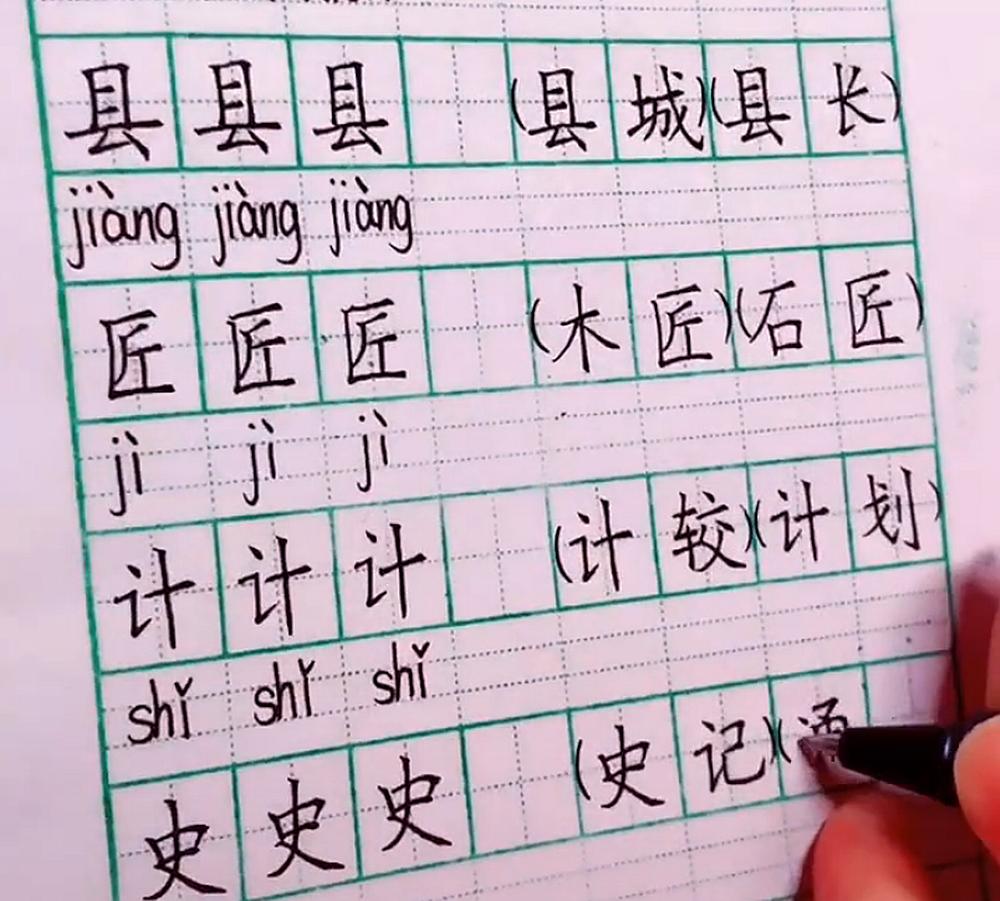 县 县 县 (县 城)(县 长)
jiàng jiàng jiàng
匠 匠 匠 (木 匠)(石 匠)
jì jì jì
计 计 计 (计 较)(计 划)
shǐ shǐ shǐ
史 史 史 (史 记)(